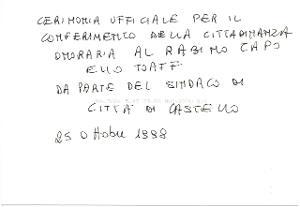 CERIMONIA UFFICIALE PER IL
CONFERIMENTO DELLA CITTADINANZA
ONORARIA AL RABINO CAPO
ELIO TOAFF
DA PARTE DEL SINDACO DI
CITTÀ DI CASTELLO
25 Ottobre 1998